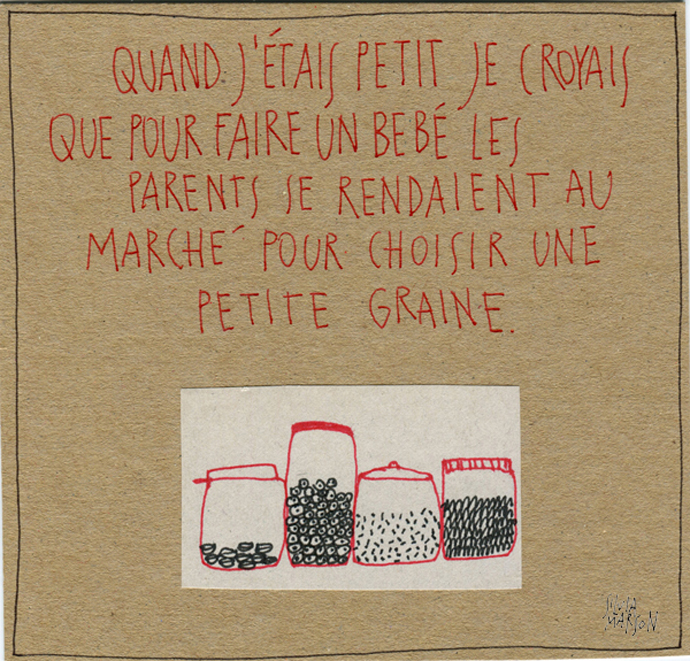 QUAND J'ÉTAIS PETIT JE CROYAIS
QUE POUR FAIRE UN BEBÉ LES
PARENTS SE RENDAIENT AU
MARCHÉ POUR CHOISIR UNE
PETITE GRAINE.
MARSON